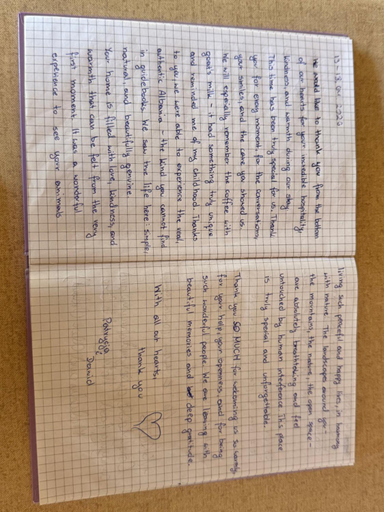 We would like to thank you from the bottom
of our hearts for your incredible hospitality,
kindness, and warmth during our stay.
This time has been truly special for us. Thank
you for every moment, for the conversations,
your smiles, and the care you showed us.
We will especially remember the coffee with
goat's milk - it had something truly unique
and reminded me of my childhood. Thanks
to you we were able to experience the real,
authentic Albania - the kind you cannot find
in guidebooks. We saw true life here: simple,
natural, and beautifully genuine.
Your home is filled with love, kindness, and
warmth that can be felt from the very
first moment. It was a wonderful
experience to see your animals
living such peaceful and happy lives, in harmony
with nature. The landscapes around you -
the mountains, the nature, the open space -
are absolutely breathtaking and feel
untouched by human interference. This place
is truly special and unforgettable.
Thank you SO MUCH for welcoming us so warmly
for your help, your openness, and for being
such wonderful people. We are leaving with
beautiful memories and deep gratitude.
With all our hearts,
thank you
Patrycja
Dawid